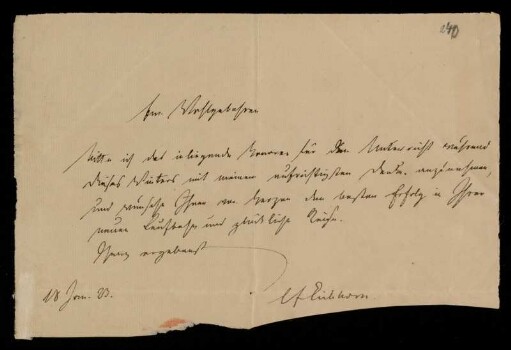 240
Ew. Wohlgebohren
bitte ich das inliegende Honorar für den Unterricht während
dieses Winters mit meinem aufrichtigsten Danke anzunehmen,
und wünsche Ihnen von Herzen den besten Erfolg in Ihrer
neuen Laufbahn und glückliche Reise.
Ihr ergebenst
18 Jan. 33.
Eichhorn